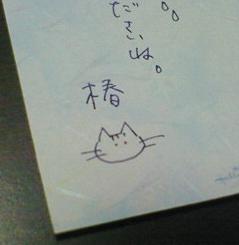 ださいね。
椿